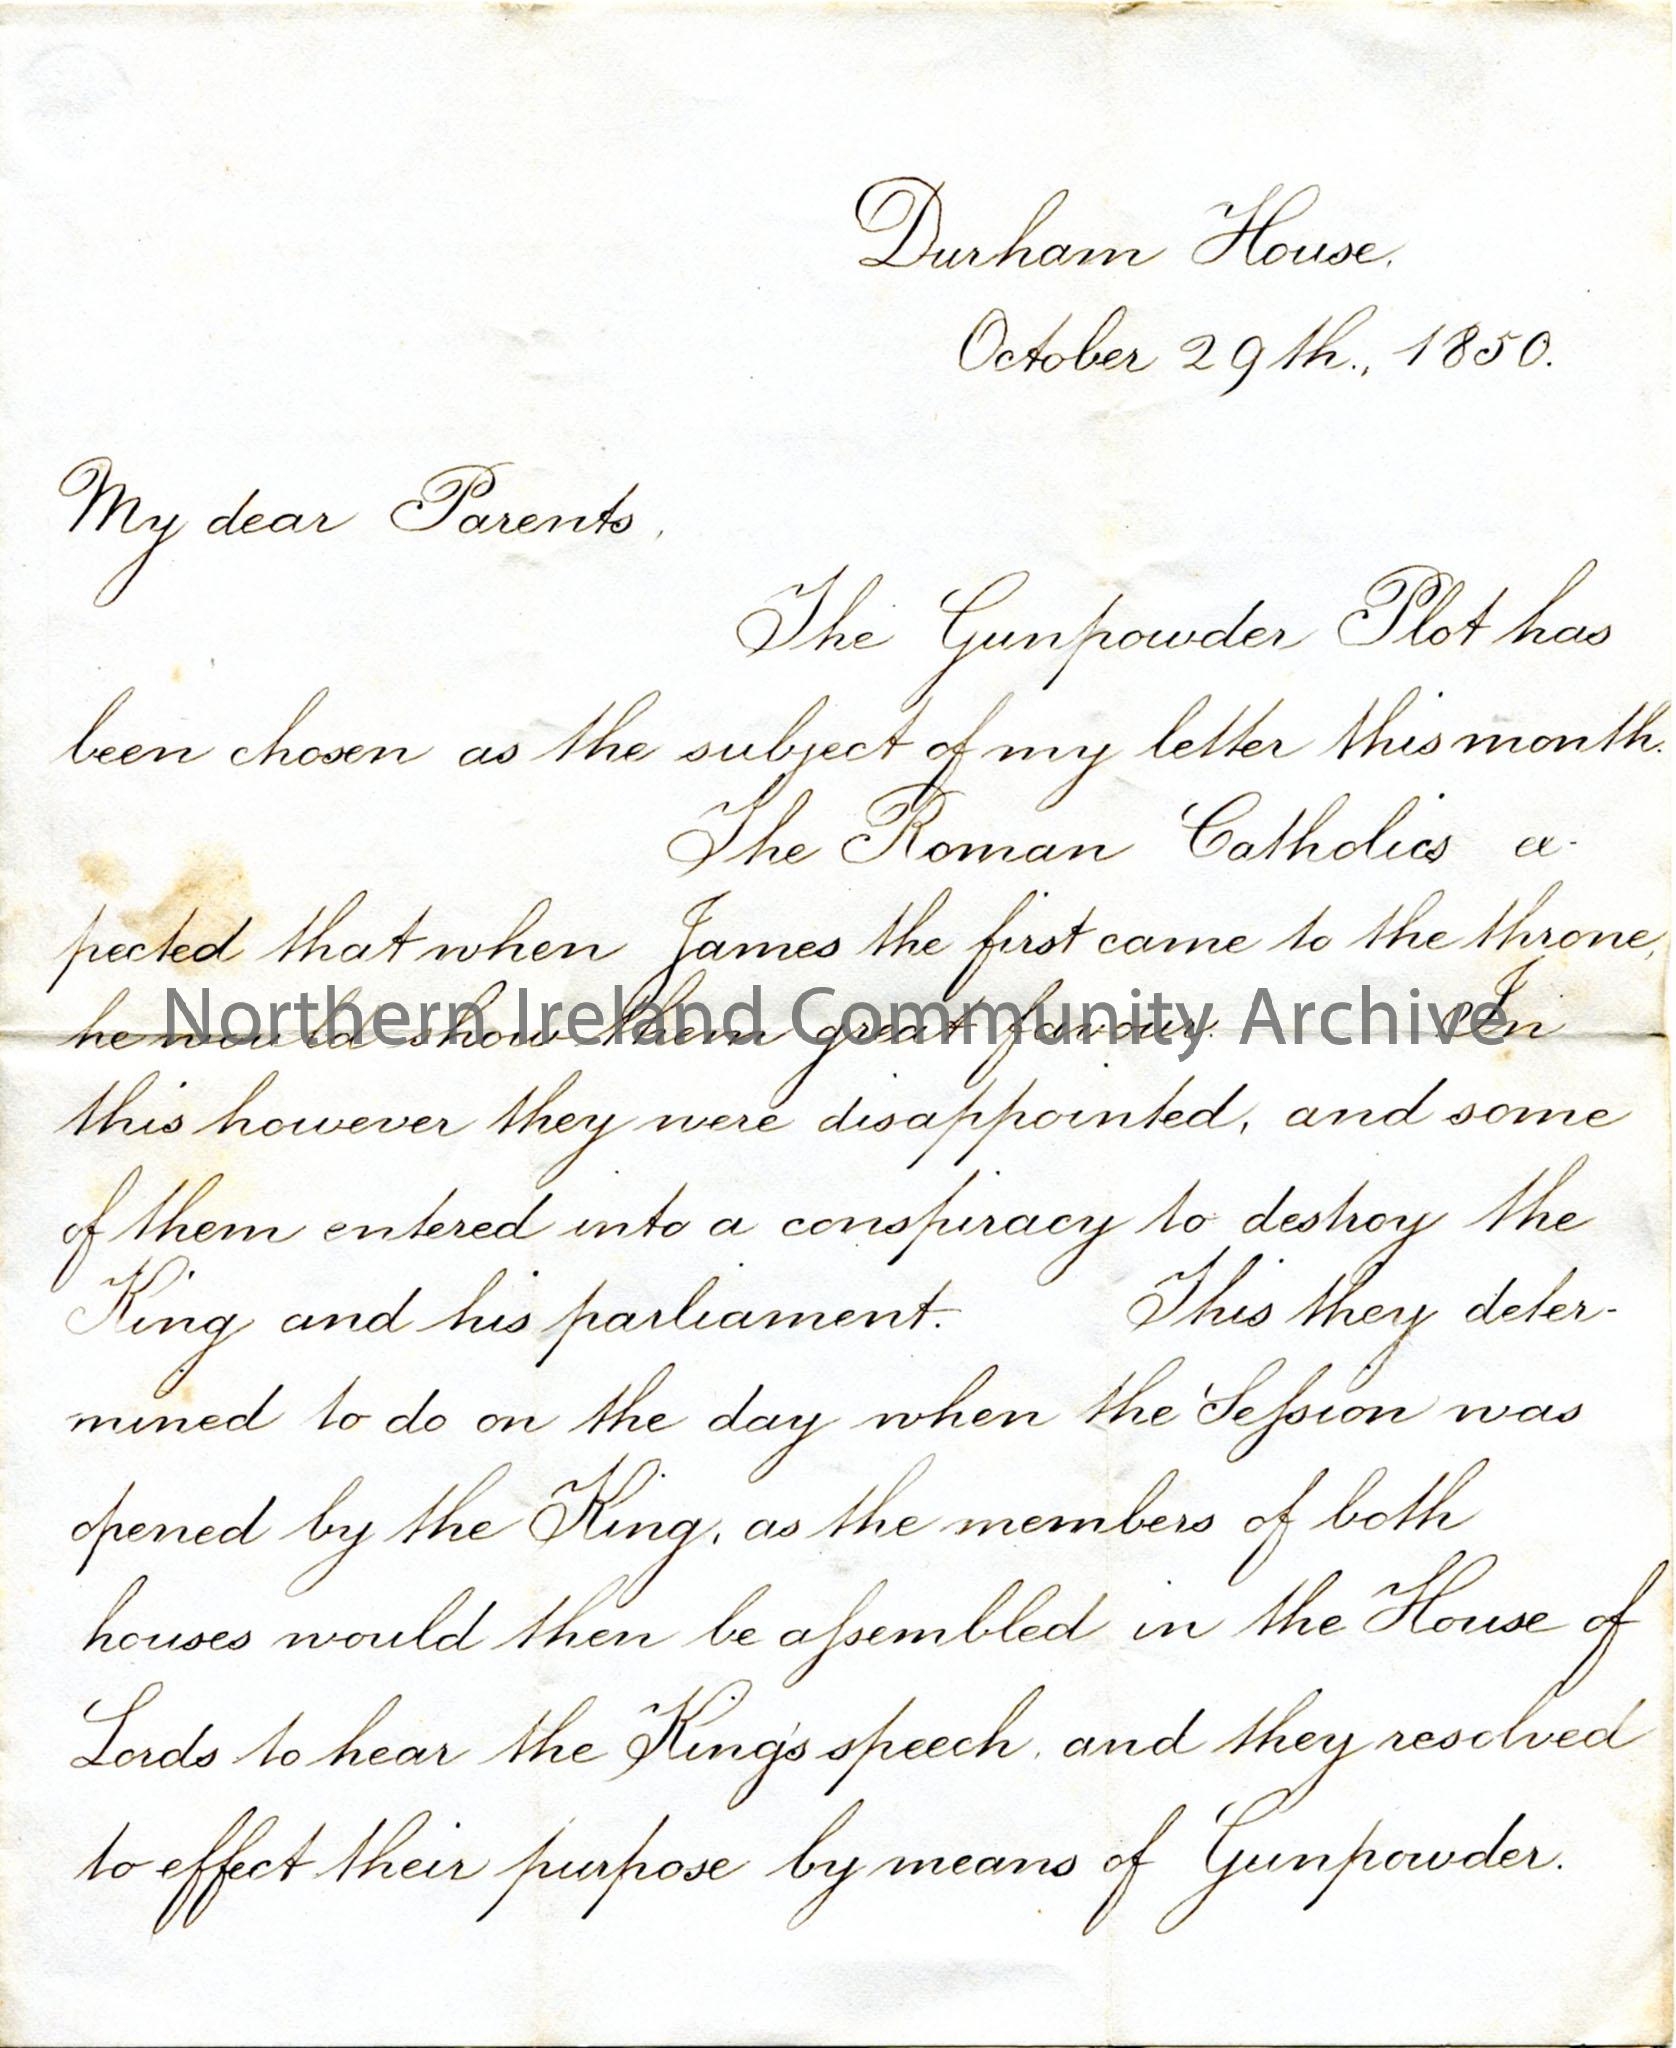 Durham House.
October 29th., 1850.
My dear Parents,
The Gunpowder Plot has
been chosen as the subject of my letter this month.
The Roman Catholics ex-
pected that when James the first came to the throne,
he would show them great favour. In
Northern Ireland Community Archive
this however they were disappointed, and some
of them entered into a conspiracy to destroy the
King and his parliament. This they deter-
mined to do on the day when the Seſsion was
opened by the King, as the members of both
houses would then be aſsembled in the House of
Lords to hear the King's speech, and they resolved
to effect their purpose by means of Gunpowder.